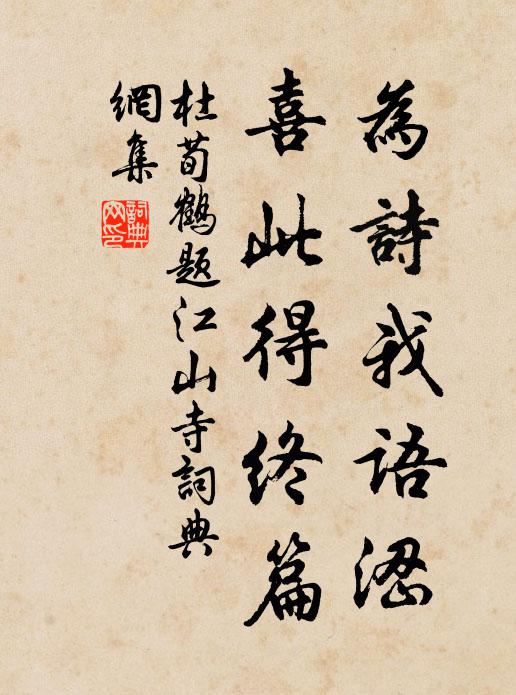 為詩我語涩
喜此得終篇
杜荀鶴题江山寺詞典
網集
詞典
网印